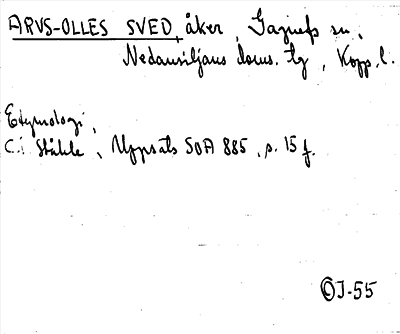 ARVS-OLLES SVED, åker, Gagnefs sn,
Nedansiljans doms. tg, Kopp. l.
Etymologi,
C.I. Ståhle, Uppsats SOA 885, s. 15 f.
OJ-55